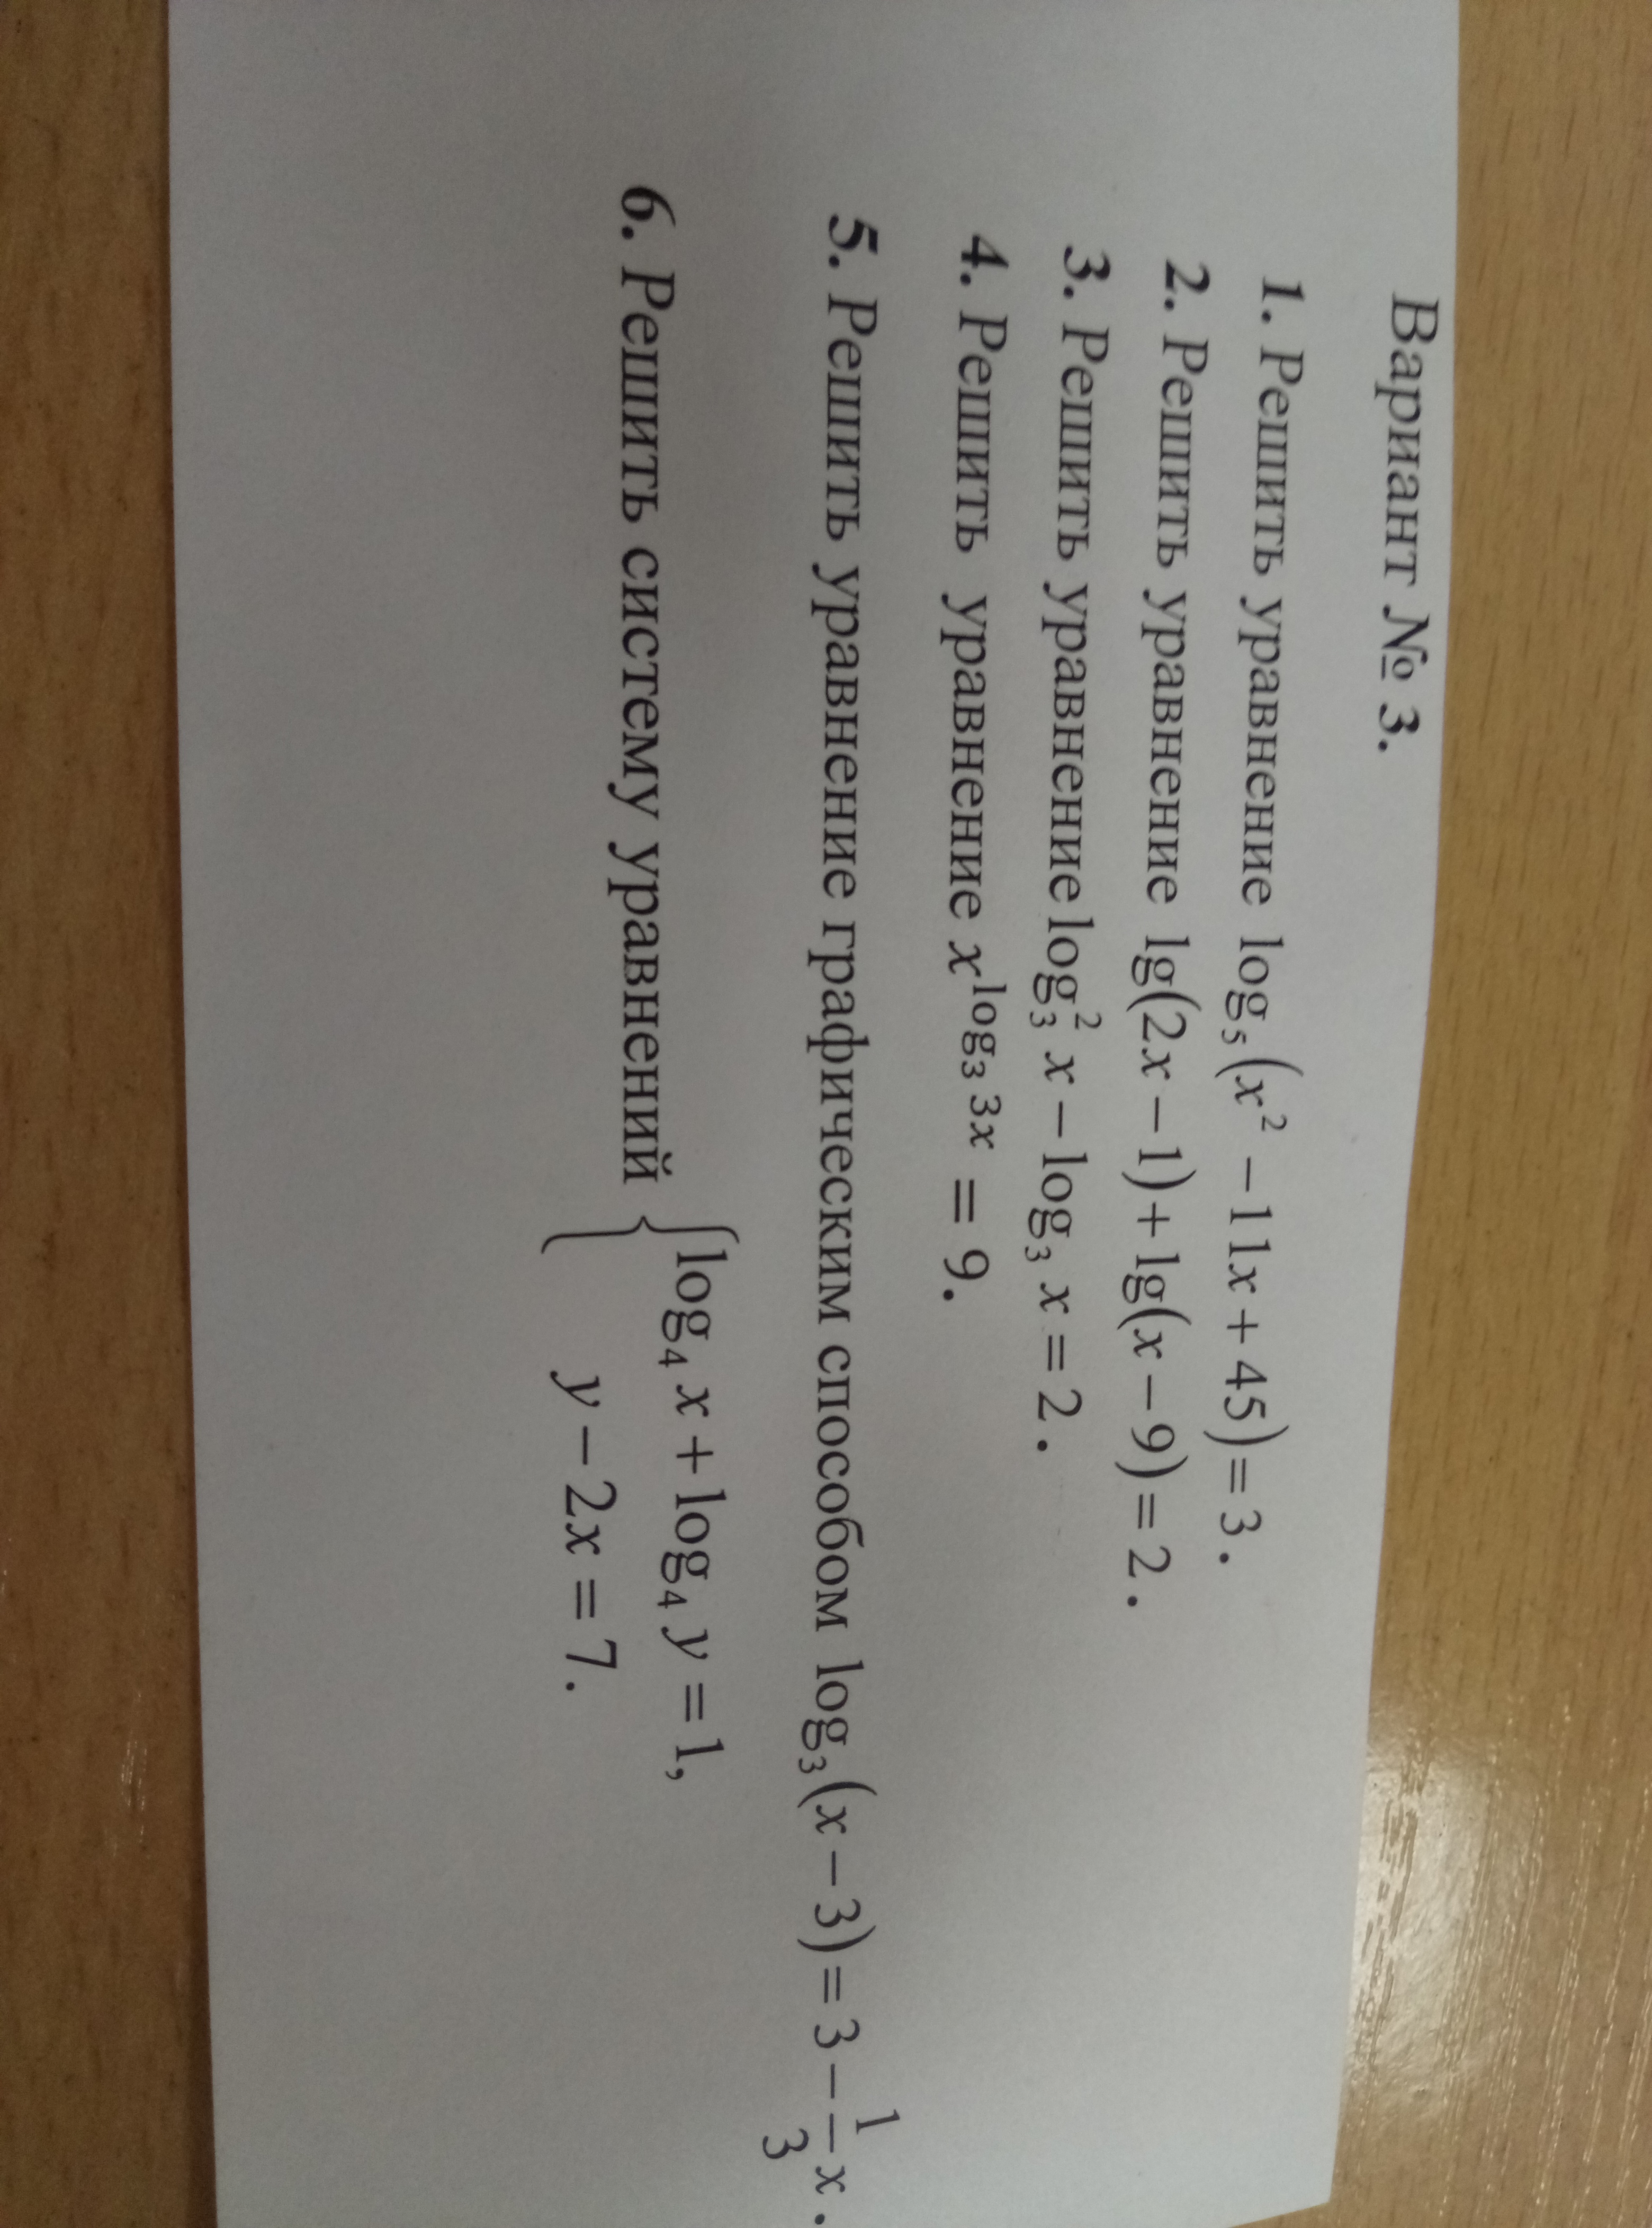 Вариант № 3.
1. Решить уравнение log₅(x² − 11x + 45) = 3.
2. Решить уравнение lg(2x − 1) + lg(x − 9) = 2.
3. Решить уравнение log₃² x − log₃ x = 2.
4. Решить уравнение x^(log₃ 3x) = 9.
5. Решить уравнение графическим способом log₃(x − 3) = 3 − 1/3 x.
6. Решить систему уравнений { log₄ x + log₄ y = 1,
y − 2x = 7.